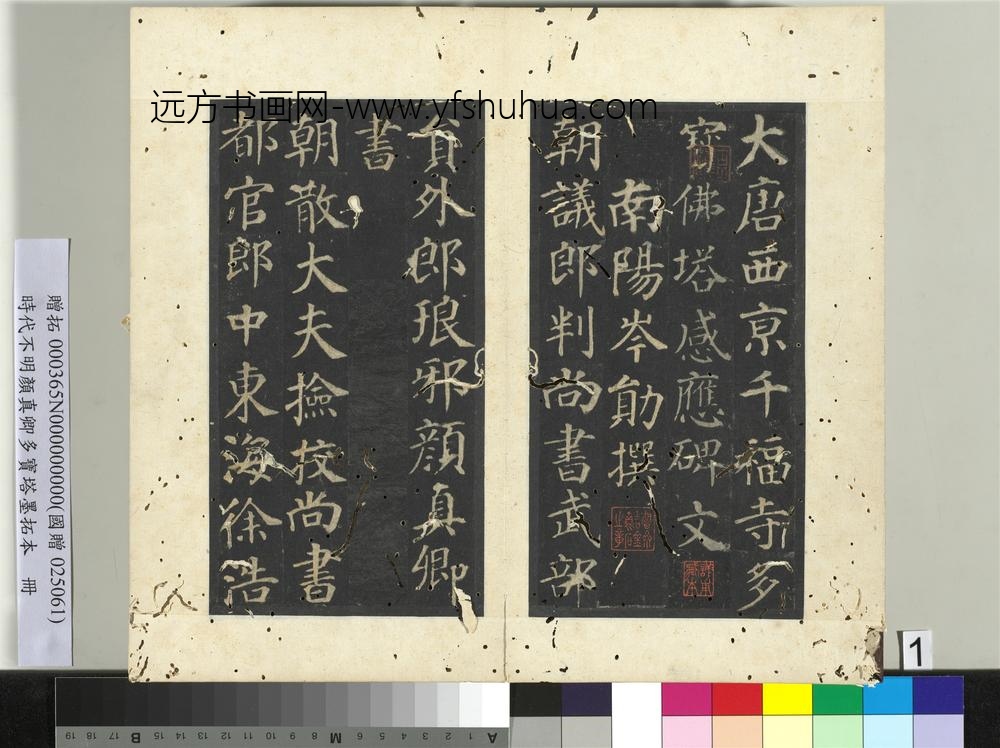 远方书画网-www.yfshuhua.com
大唐西京千福寺多
寶佛塔感應碑文
南陽岑勛撰
朝議郎判尚書武部
員外郎琅邪顏真卿
書
朝散大夫撿挍尚書
都官郎中東海徐浩
贈拓 000365N000000000(國贈 025061)
時代不明顏真卿多寶塔墨拓本 冊
1
A 1 2 3 4 5 6 7 8 M 9 10 11 12 13 14 15 B 16 17 18 19